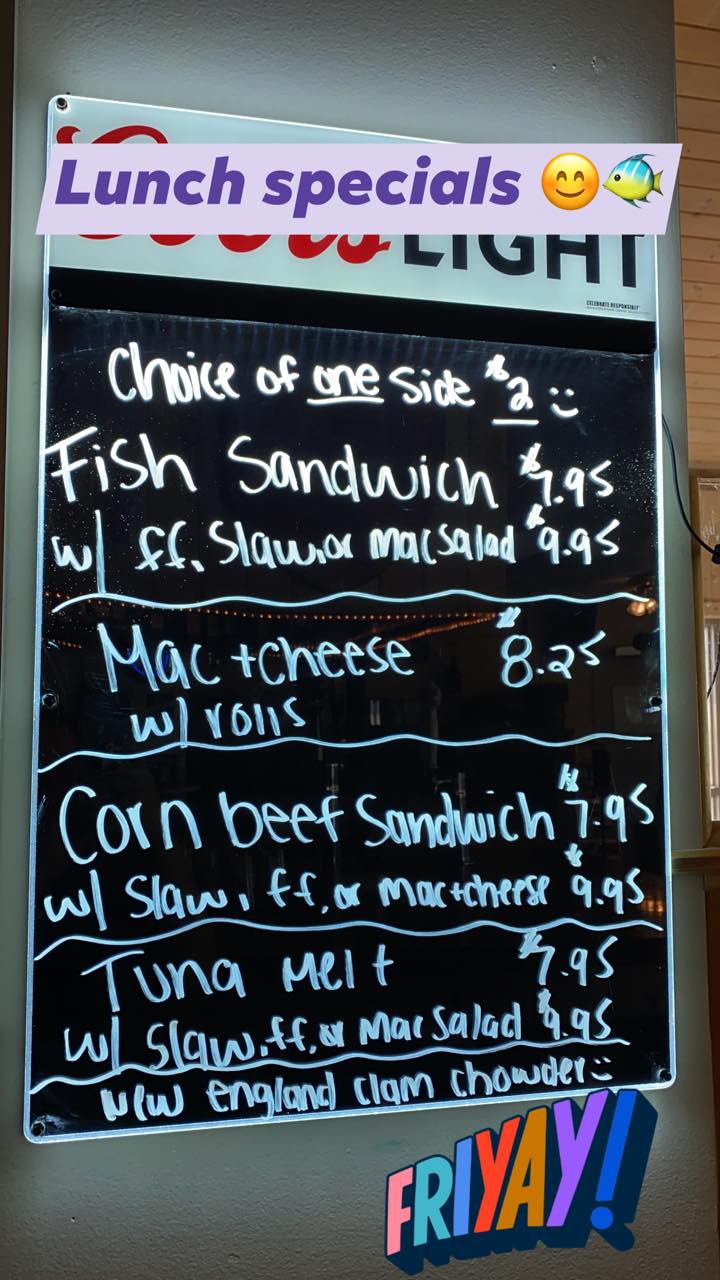 Lunch specials 😊🐠
Coors LIGHT
CELEBRATE RESPONSIBLY®
Choice of one side $2 :)
Fish Sandwich $7.95
w/ ff, Slaw, or mac salad $9.95
Mac + cheese $8.25
w/ rolls
Corn beef Sandwich $7.95
w/ Slaw, ff, or mac + cheese $9.95
Tuna melt $7.95
w/ Slaw, ff, or Mac Salad $9.95
New england clam chowder :)
FRIYAY!